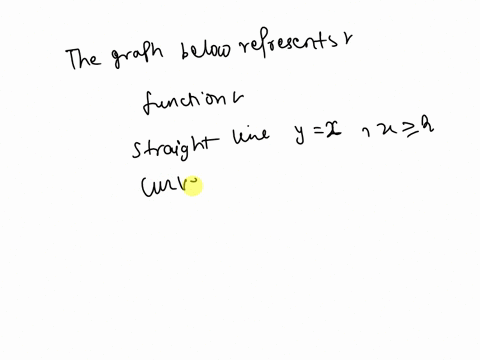 The graph below represents r
function r
straight line y = x , x ≥ 2
Curv